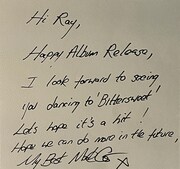 Hi Ray,
Happy Album Release,
I look forward to seeing
you dancing to 'Bittersweet'
Lets hope it's a hit!
Hope we can do more in the future,
My Best